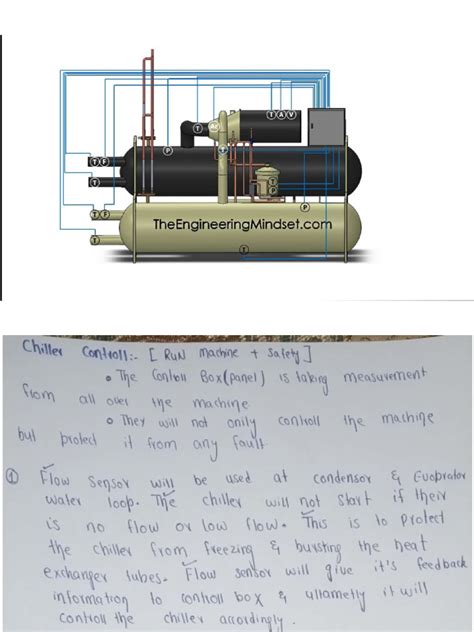 T A V
T
Ar
P
T F
T
T
P
P
T F
T
TheEngineeringMindset.com
T
Chiller Controll:- [ RUN machine + Safety ]
• The Controll Box(panel) is taking measurement
from all over the machine
• They will not only controll the machine
but protect it from any fault
① Flow Sensor will be used at condensor & Evoprator
water loop. The chiller will not start if their
is no flow or low flow. This is to Protect
the chiller from freezing & bursting the heat
exchanger tubes. Flow sensor will give it's feedback
information to controll box & ullametly it will
controll the chiller accordingly.